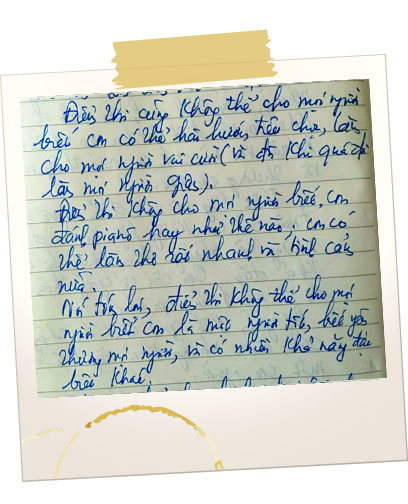 Điểm thi cũng không thể cho mọi người
biết con có thể hài hước, tiếu chọc, làm
cho mọi người vui cười (và đôi khi quá đà
làm mọi người giận).
Điểm thi không cho mọi người biết, con
đánh pianô hay như thế nào. con có
thể làm thơ rất nhanh và tình cảm
nữa.
Nói tóm lại, điểm thi không thể cho mọi
người biết con là một người tốt, biết yêu
thương mọi người, và có nhiều khả năng đặc
biệt khác.